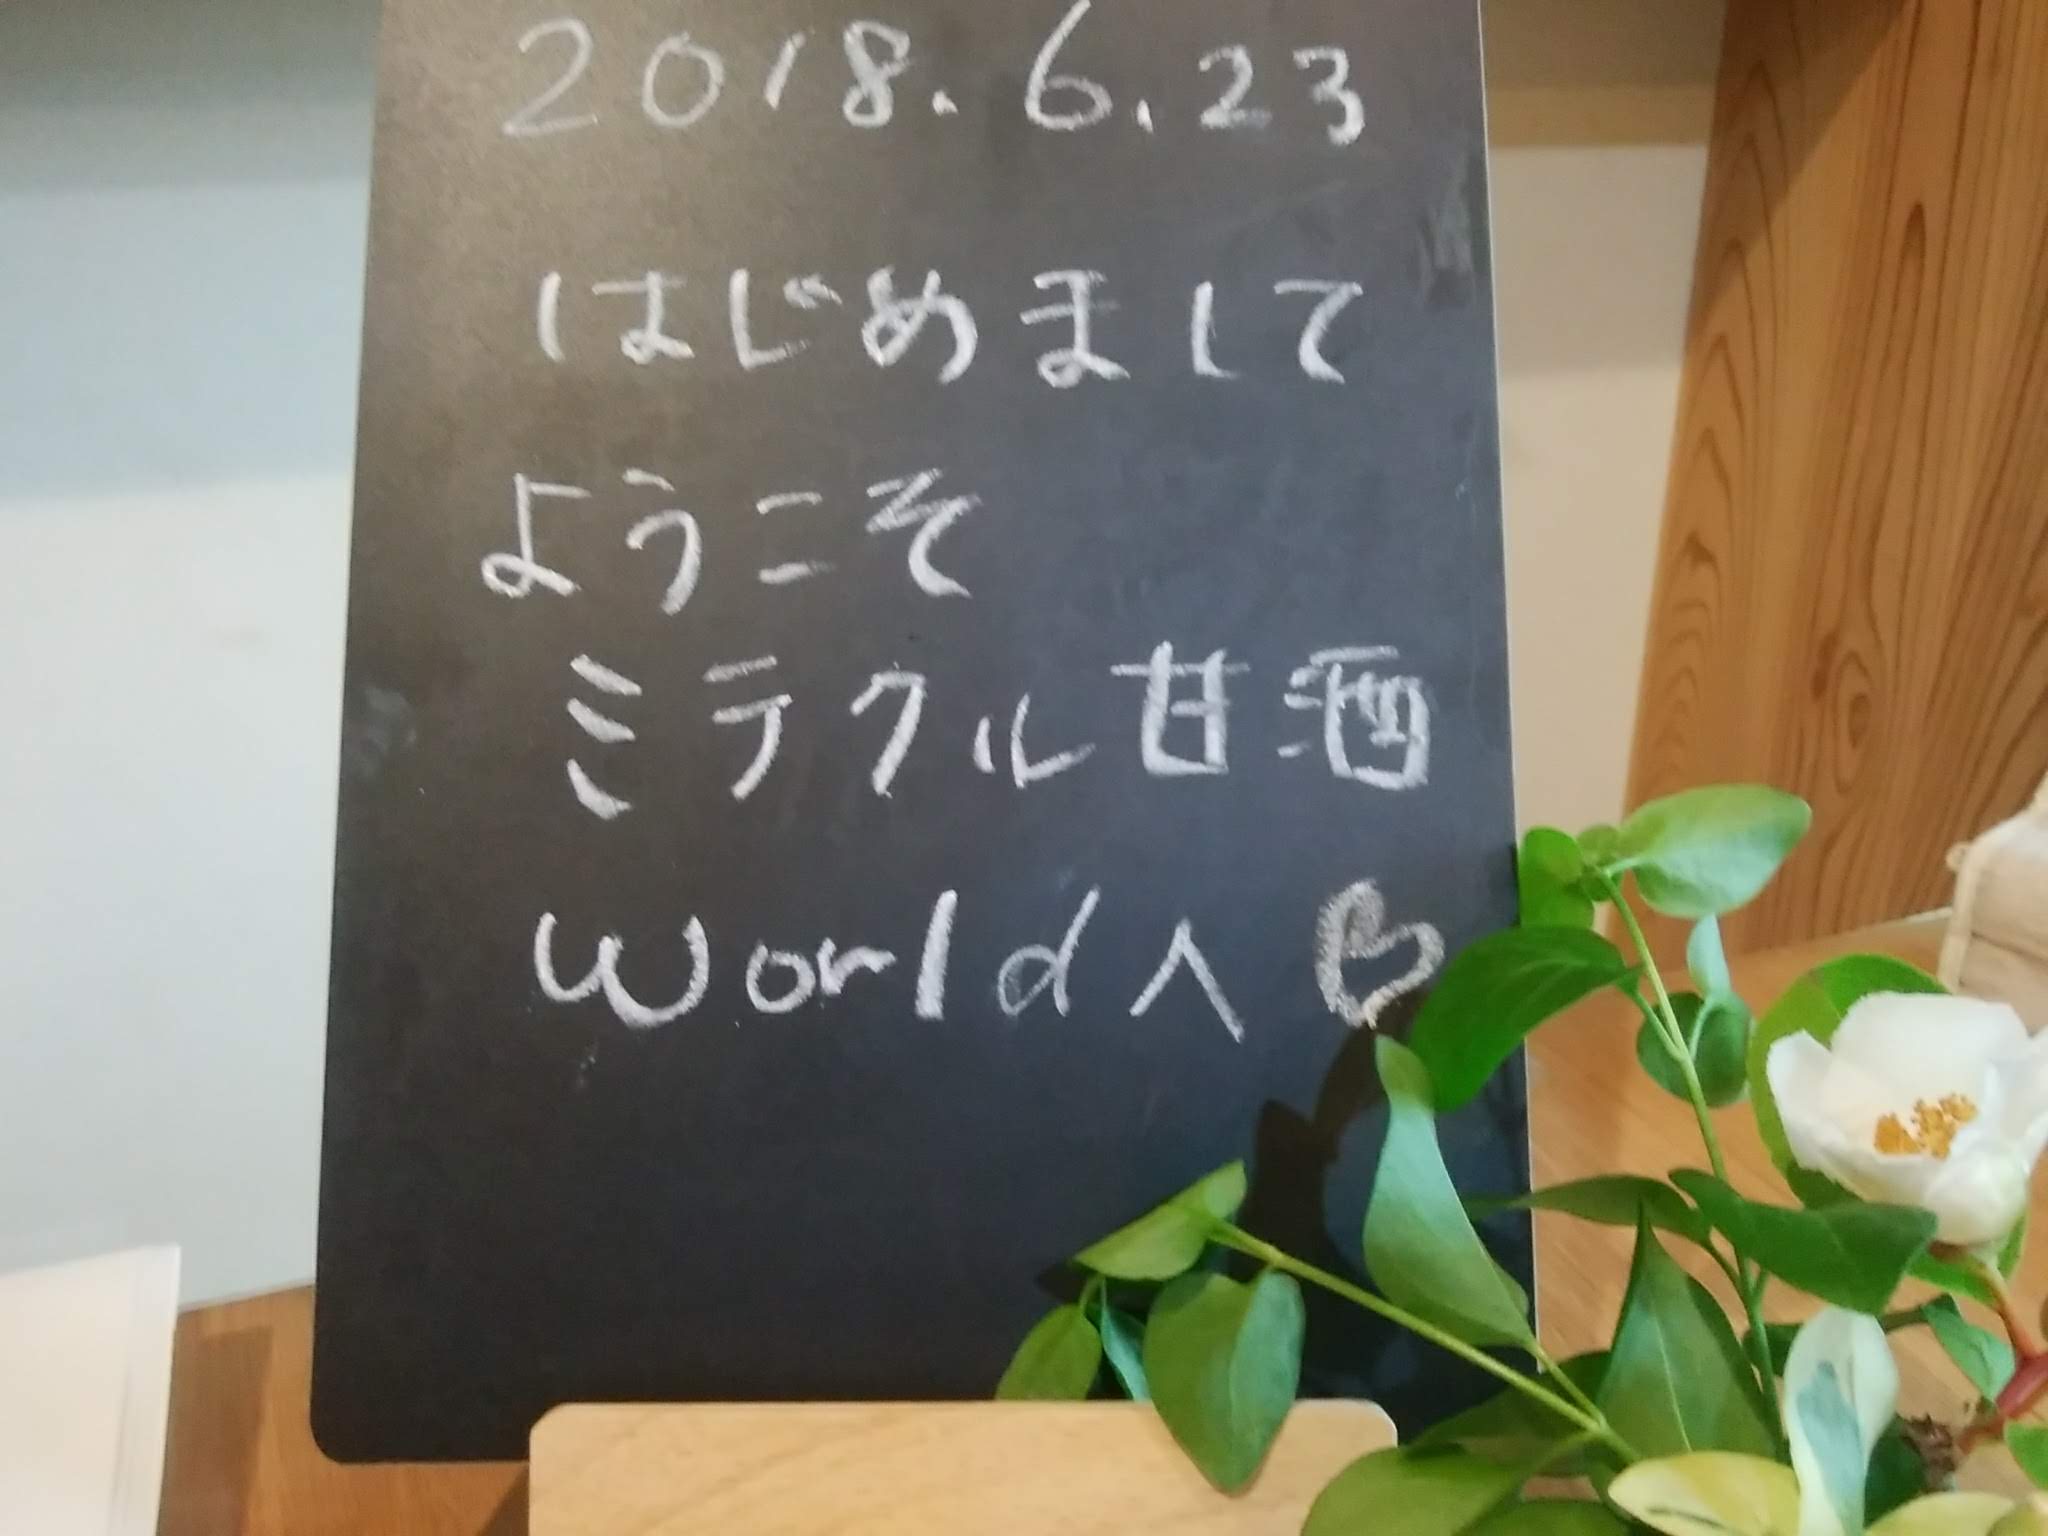 2018.6.23
はじめまして
ようこそ
ミラクル甘酒
worldへ♡